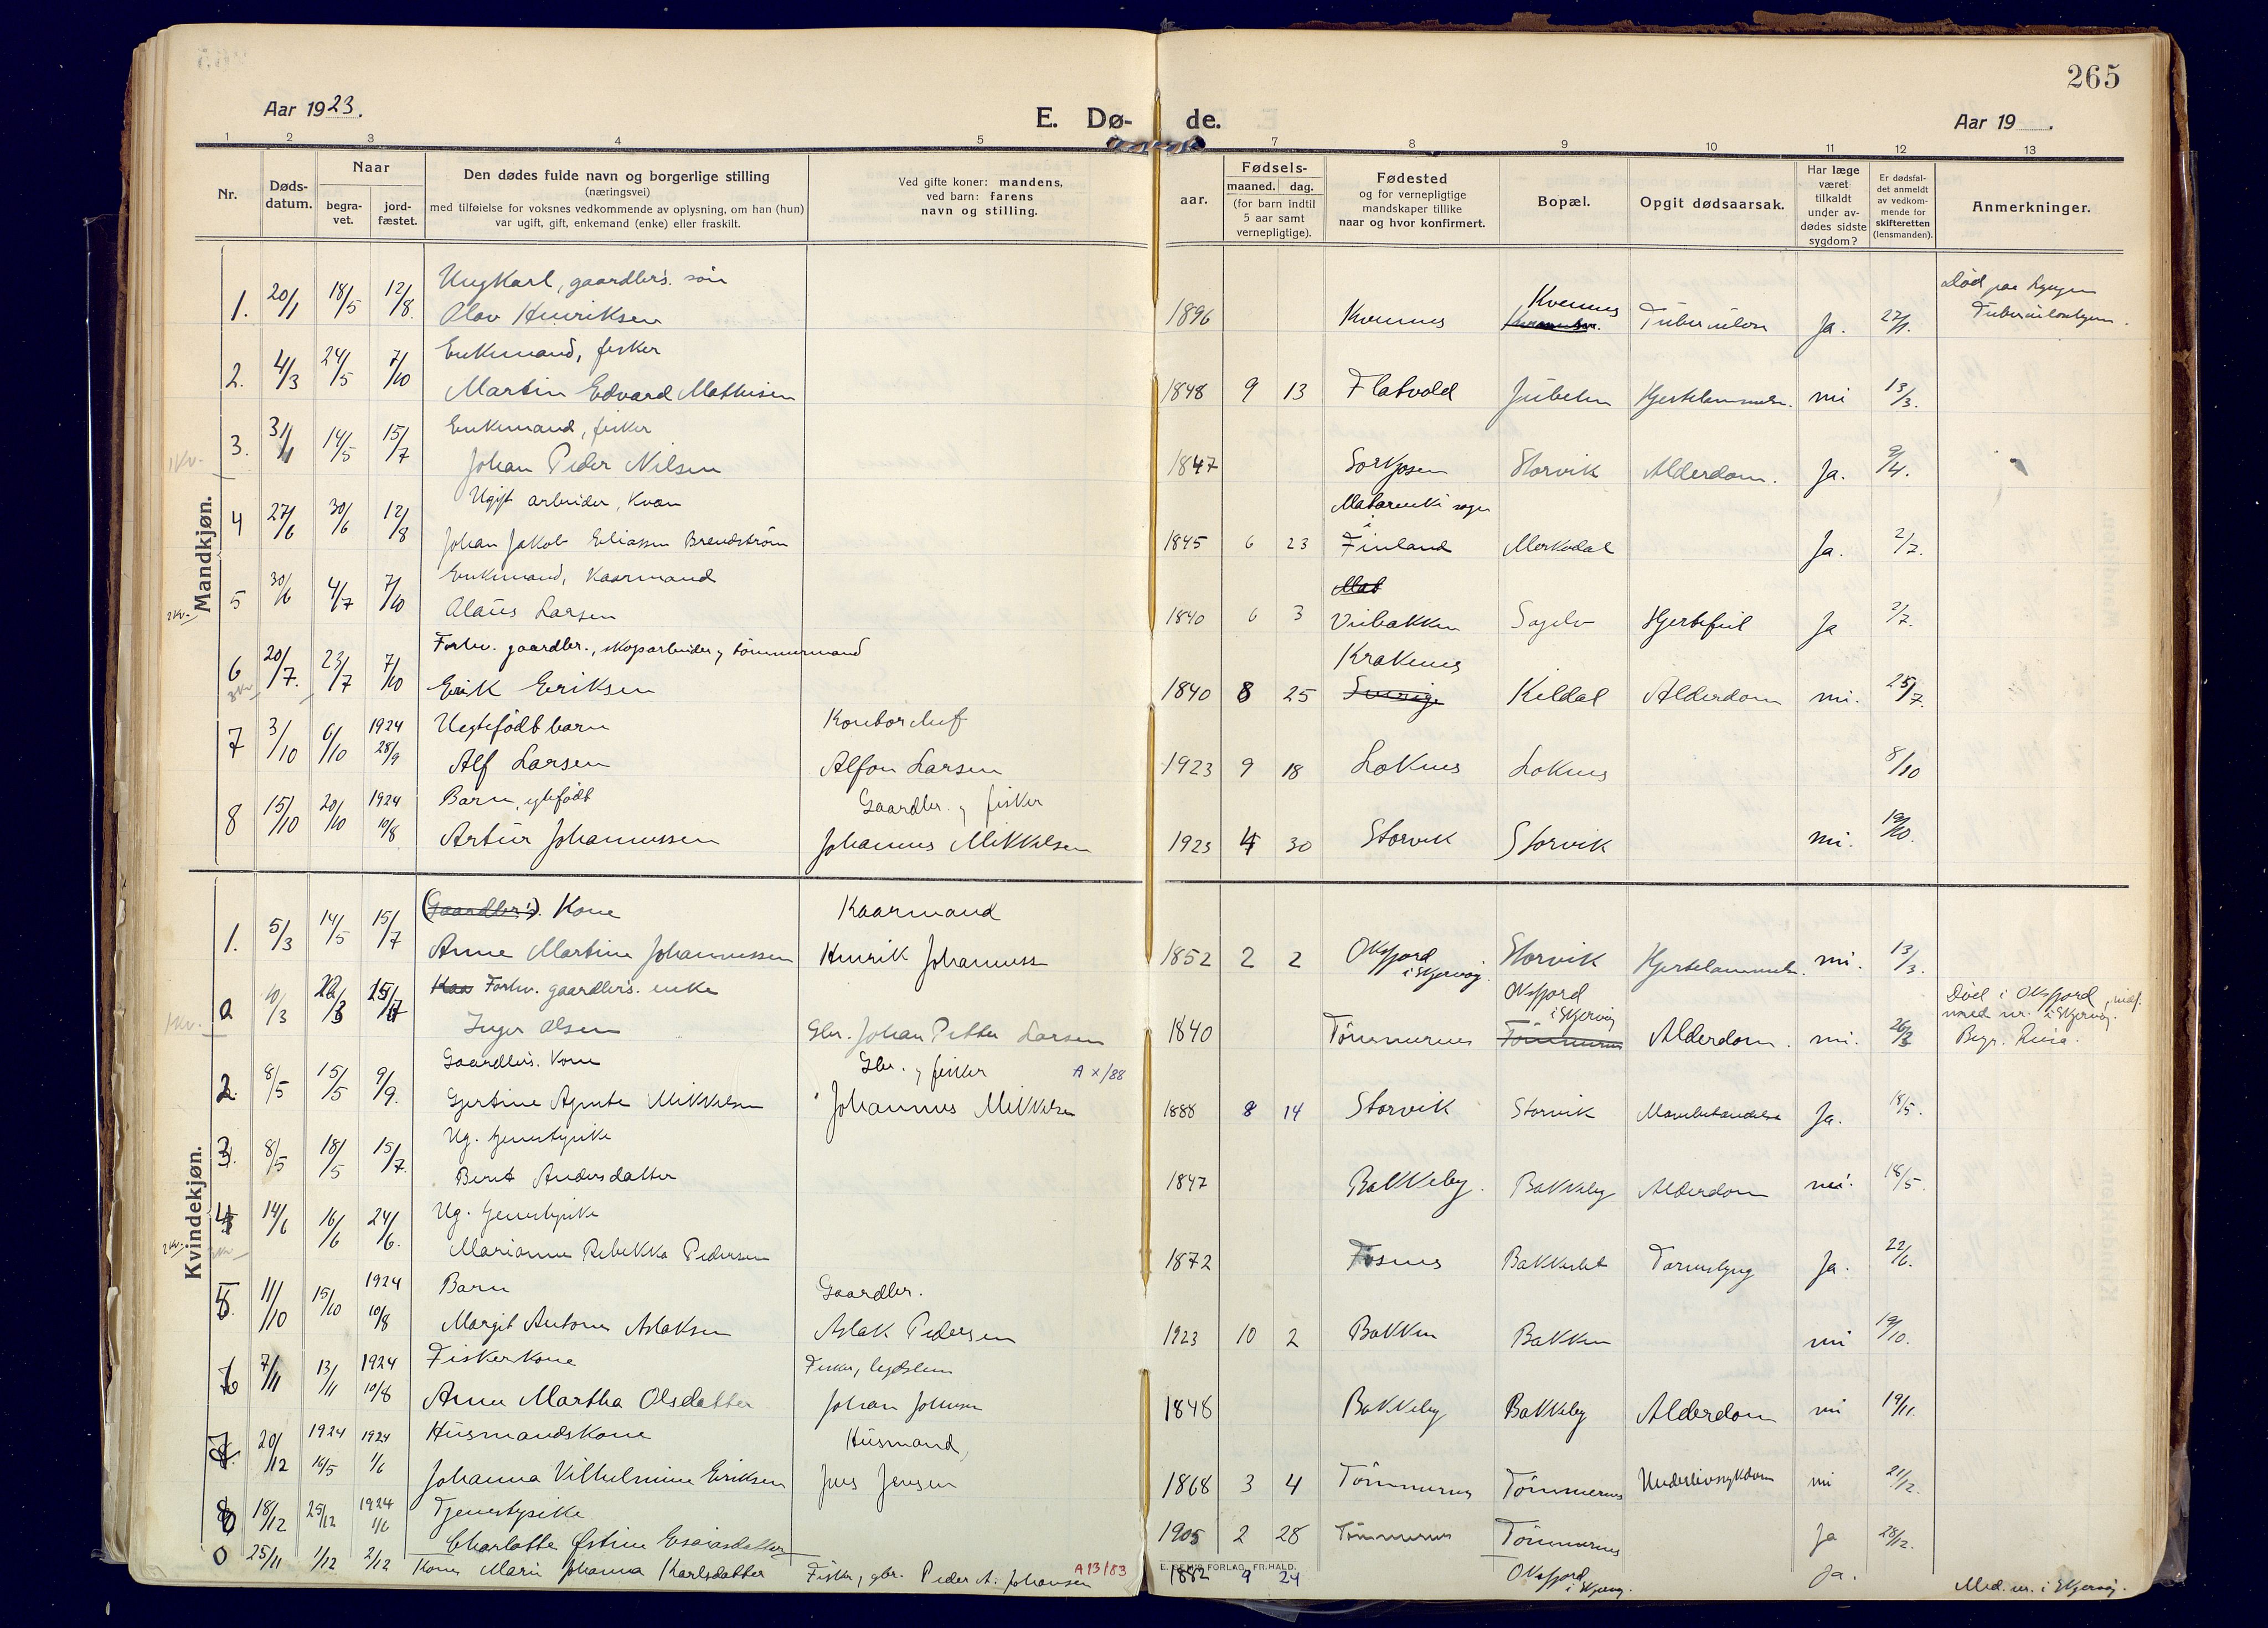 265
Aar 1923.
E. Dø- de.
Aar 19 .
1 2 3 4 5 7 8 9 10 11 12 13
Nr.
Døds-
datum.
Naar
begra-
vet.
jord-
fæstet.
Den dødes fulde navn og borgerlige stilling
(næringsvei)
med tilføielse for voksnes vedkommende av oplysning, om han (hun)
var ugift, gift, enkemand (enke) eller fraskilt.
Ved gifte koner: mandens,
ved barn: farens
navn og stilling.
aar.
Fødsels-
maaned. dag.
(for barn indtil
5 aar samt
vernepligtige).
Fødested
og for vernepligtige
mandskaper tillike
naar og hvor konfirmert.
Bopæl.
Opgit dødsaarsak.
Har læge
været
tilkaldt
under av-
dødes sidste
sygdom?
Er dødsfal-
det anmeldt
av vedkom-
mende for
skifteretten
(lensmanden).
Anmerkninger.
Mandkjøn.
Ungkarl, gaardbr's. søn Død paa Lyngen
1. 20/1 18/5 12/8 Olav Henriksen 1896 Kvennes Kvennes Tuberculose Ja. 27/1. Tuberculosehjem.
Enkemand, fisker
2. 4/3 24/5 7/10 Martin Edvard Mathisen 1848 9 13 Flatvold Jubelen Hjertelammelse. nei 13/3.
Enkemand, fisker
3. 31/1 14/5 15/7 Johan Peder Nilsen 1847 Sørkjosen Storvik Alderdom. Ja. 9/4.
1 Kv.
Ugift arbeider, Kvæn Matarenki sogn
4 27/6 30/6 12/8 Johan Jakob Eliassen Brendström 1845 6 23 i Finland Merkedal Ja. 2/7.
Enkemand, Kaarmand Mat
5 30/6 4/7 7/10 Olaus Larsen 1840 6 3 Veibakken Sagelv Hjertefeil Ja 2/7.
2 Kv.
Forhv. gaardbr., skogsarbeider og tømmermand Krakenes
6 20/7. 23/7 7/10 Erik Eriksen 1840 8 25 Sverige Kildal Alderdom nei. 25/7.
Uegtefødt barn Kontorchef
7 3/10 6/10 1924 28/9 Alf Larsen Alfon Larsen 1923 9 18 Løknes Løknes 8/10
Barn, egtefødt Gaardbr. og fisker
8 15/10 20/10 1924 10/8 Artur Johannessen Johannes Mikkelsen 1923 4 30 Storvik Storvik nei. 19/10.
Kvindekjøn.
(Gaardbr's). Kone Kaarmand
1. 5/3 14/5 15/7 Anne Martine Johannessen Henrik Johanness 1852 2 2 Oksfjord i Skjervøy. Storvik Hjertelammelse. nei. 13/3.
Kaa Forhv. gaardbr's. enke Oksfjord i Skjervøy Død i Oksfjord, indf. med nr. i Skjervøy.
0 10/3 22/3 15/7 Inger Olsen Gbr. Johan Petter Larsen 1840 Tømmernes Tømmernes Alderdom. nei. 26/3 Begr. Reisa.
1 Kv.
Gaardbr's. Kone Gbr. og fisker A X/88
2. 8/5 15/5 9/9. Gjertine Agnete Mikkelsen Johannes Mikkelsen 1888 8 14 Storvik Storvik Ja. 18/5.
Ug. tjenestepike
3. 8/5 18/5 15/7. Berit Andersdatter 1847 Bakkeby. Bakkeby Alderdom nei. 18/5.
Ug. tjenestepike
4 14/6 16/6 24/6. Marianne Rebekka Pedersen 1872 Tosnes Bakkeslet Tarmslyng Ja. 22/6.
2 Kv.
Barn Gaardbr.
5. 11/10 15/10 1924 10/8 Margit Antone Aslaksen Aslak Pedersen 1923 10 2 Bakken Bakken nei 19/10.
Fiskerkone Fisker, lægdslem
6 7/11 13/11 1924 10/8 Anne Martha Olsdatter Johan Johnsen 1848 Bakkeby Bakkeby Alderdom nei 19/11.
Husmandskone Husmand,
7 20/12 1924 16/5 1924 1/6 Johanna Vilhelmine Eriksen Jens Jensen 1868 3 4 Tømmernes Tømmernes Underlivssykdom nei 21/12.
Tjenestepike
8 18/12 25/12 1924 1/6 Charlotte Østine Esaiasdatter 1905 2 28 Tømmernes Tømmernes Ja 28/12.
A 13/83
E. SEM'S FORLAG, FR.HALD.
0 25/11 1/12 2/12 Kone Marie Johanna Karlsdatter Fisker, gbr. Peder A. Johansen 1882 9 24 Oksfjord i Skjervøy. Ja. Med. nr. i Skjervøy.